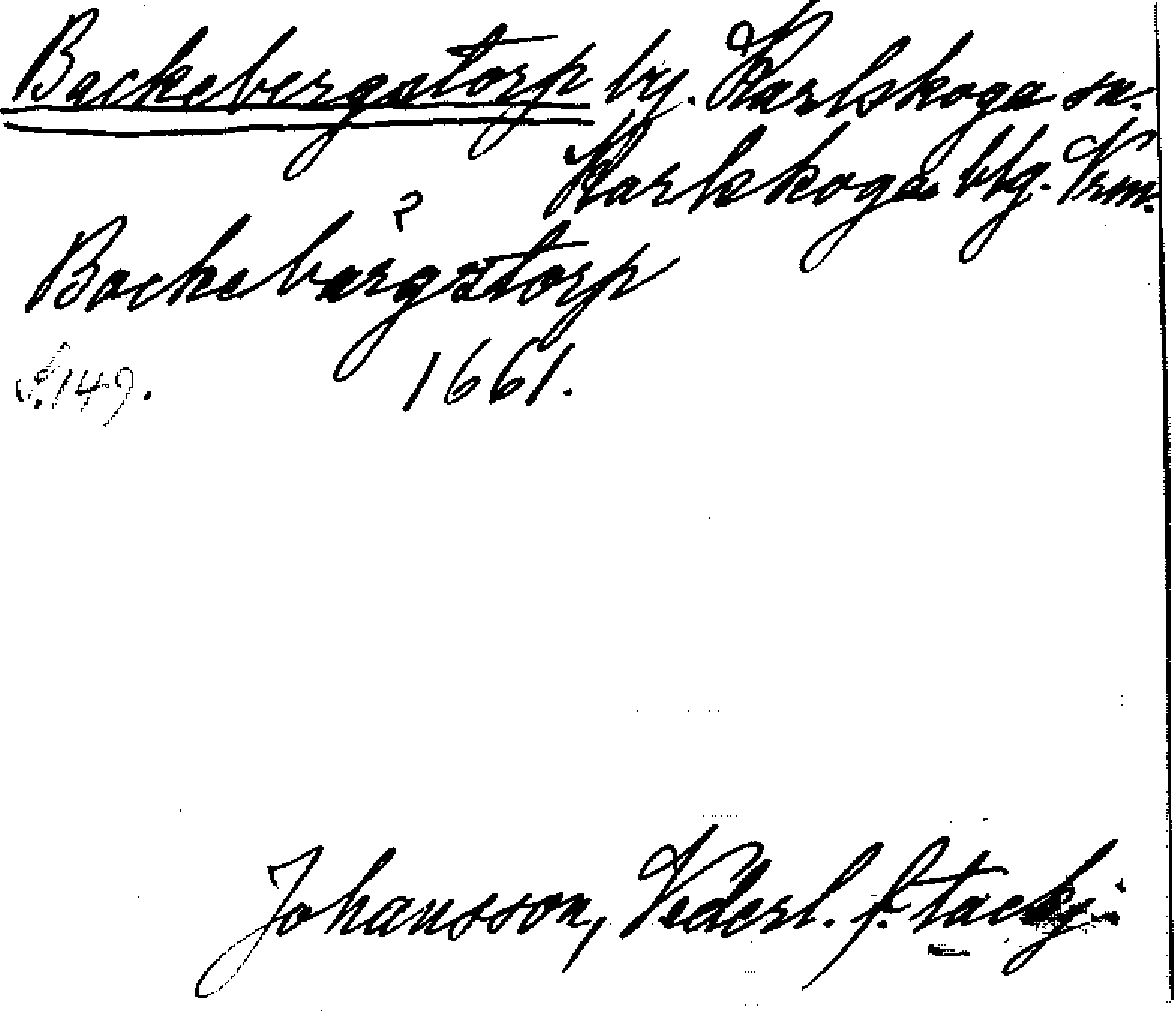 Backebergstorp by. Karlskoga sn.
Karlskoga bbg. Vrm.
?
Backebärgstorp
S. 149. 1661.
Johansson, Vederl. f. tackj.